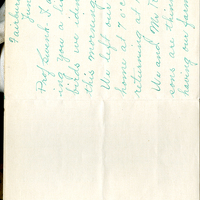 Fairbur
Ju
Prof Swenk. I a
ing you a
birds we iden
this morning
We left our
home at 7 oc
returning at
We and Mr
sons are thin
having our farm